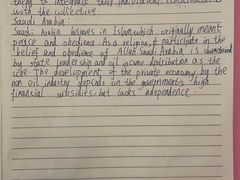 them to integrate their individual consciousness
with the collective.
Saudi Arabia:
Saudi Arabia believes in Islam which originally meant
peace and obedience. As a religion, it participate in the
belief and obedience of Allah. Saudi Arabia is characterized
by state leadership and oil income distribution as the
core. The development of the private economy by the
non oil industry depends on the government's high
financial subsidies, but lacks independence.